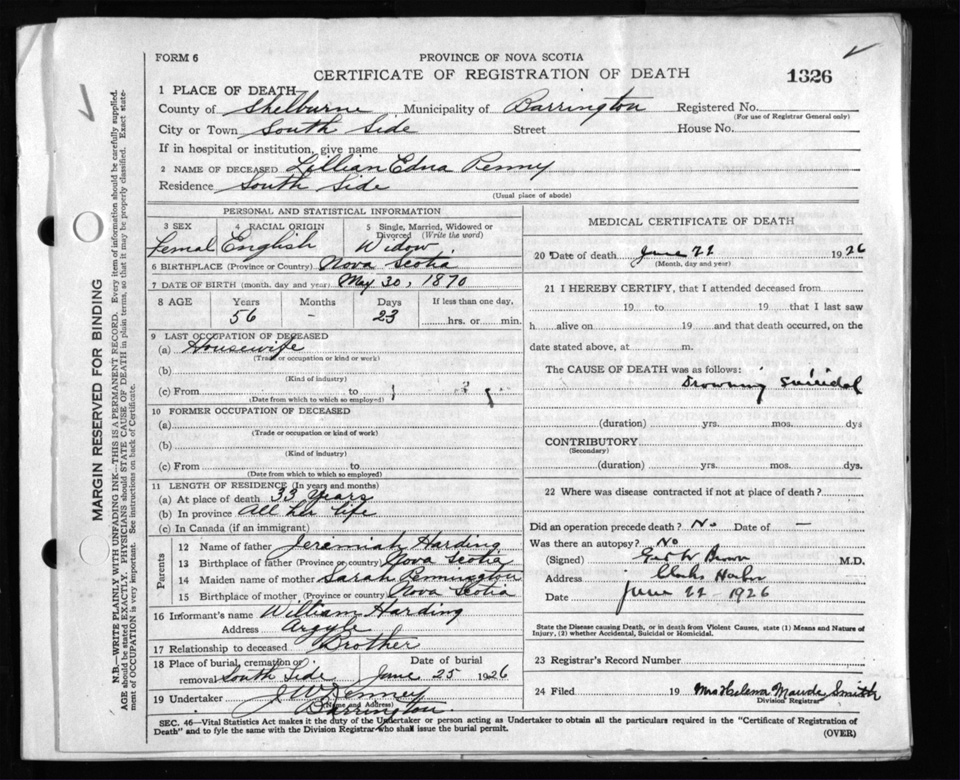 FORM 6
PROVINCE OF NOVA SCOTIA
CERTIFICATE OF REGISTRATION OF DEATH
1326
1 PLACE OF DEATH
County of Shelburne Municipality of Barrington Registered No.
(For use of Registrar General only)
City or Town South Side Street House No.
If in hospital or institution, give name
2 NAME OF DECEASED Lillian Edna Penny
Residence South Side
(Usual place of abode)
PERSONAL AND STATISTICAL INFORMATION
3 SEX 4 RACIAL ORIGIN 5 Single, Married, Widowed or Divorced (Write the word)
Femal English Widow
6 BIRTHPLACE (Province or Country) Nova Scotia
7 DATE OF BIRTH (month, day and year) May 30, 1870
8 AGE Years Months Days If less than one day,
56 - 23 hrs. or min.
9 LAST OCCUPATION OF DECEASED
(a) Housewife
(Trade or occupation or kind of work)
(b)
(Kind of industry)
(c) From to
(Date from which to which so employed)
10 FORMER OCCUPATION OF DECEASED
(a)
(Trade or occupation or kind of work)
(b)
(Kind of industry)
(c) From to
(Date from which to which so employed)
11 LENGTH OF RESIDENCE (In years and months)
(a) At place of death 33 Years
(b) In province All her life
(c) In Canada (if an immigrant)
Parents
12 Name of father Jeremiah Harding
13 Birthplace of father (Province or Country) Nova Scotia
14 Maiden name of mother Sarah Pennington
15 Birthplace of mother (Province or Country) Nova Scotia
16 Informant's name William Harding
Address Argyle
17 Relationship to deceased Brother
18 Place of burial, cremation or removal South Side Date of burial June 25 1926
19 Undertaker
(Name and Address)
Barrington
MEDICAL CERTIFICATE OF DEATH
20 Date of death June 22 1926
(Month, day and year)
21 I HEREBY CERTIFY, that I attended deceased from
19 to 19 that I last saw
h alive on 19 and that death occurred, on the
date stated above, at m.
The CAUSE OF DEATH was as follows:
Drowning suicidal
(duration) yrs. mos. dys
CONTRIBUTORY
(Secondary)
(duration) yrs. mos. dys.
22 Where was disease contracted if not at place of death?
Did an operation precede death? No Date of -
Was there an autopsy? No
(Signed) M.D.
Address
Date June 22 1926
State the Disease causing Death, or in death from Violent Causes, state (1) Means and Nature of
Injury, (2) whether Accidental, Suicidal or Homicidal.
23 Registrar's Record Number
24 Filed 19 Mrs Helena Maude Smith
Division Registrar
SEC. 46—Vital Statistics Act makes it the duty of the Undertaker or person acting as Undertaker to obtain all the particulars required in the "Certificate of Registration of
Death" and to fyle the same with the Division Registrar who shall issue the burial permit.
(OVER)
MARGIN RESERVED FOR BINDING
N.B.—WRITE PLAINLY WITH UNFADING INK—THIS IS A PERMANENT RECORD. Every item of information should be carefully supplied.
AGE should be stated EXACTLY. PHYSICIANS should STATE CAUSE OF DEATH in plain terms, so that it may be properly classified. Exact state-
ment of OCCUPATION is very important. See instructions on back of Certificate.